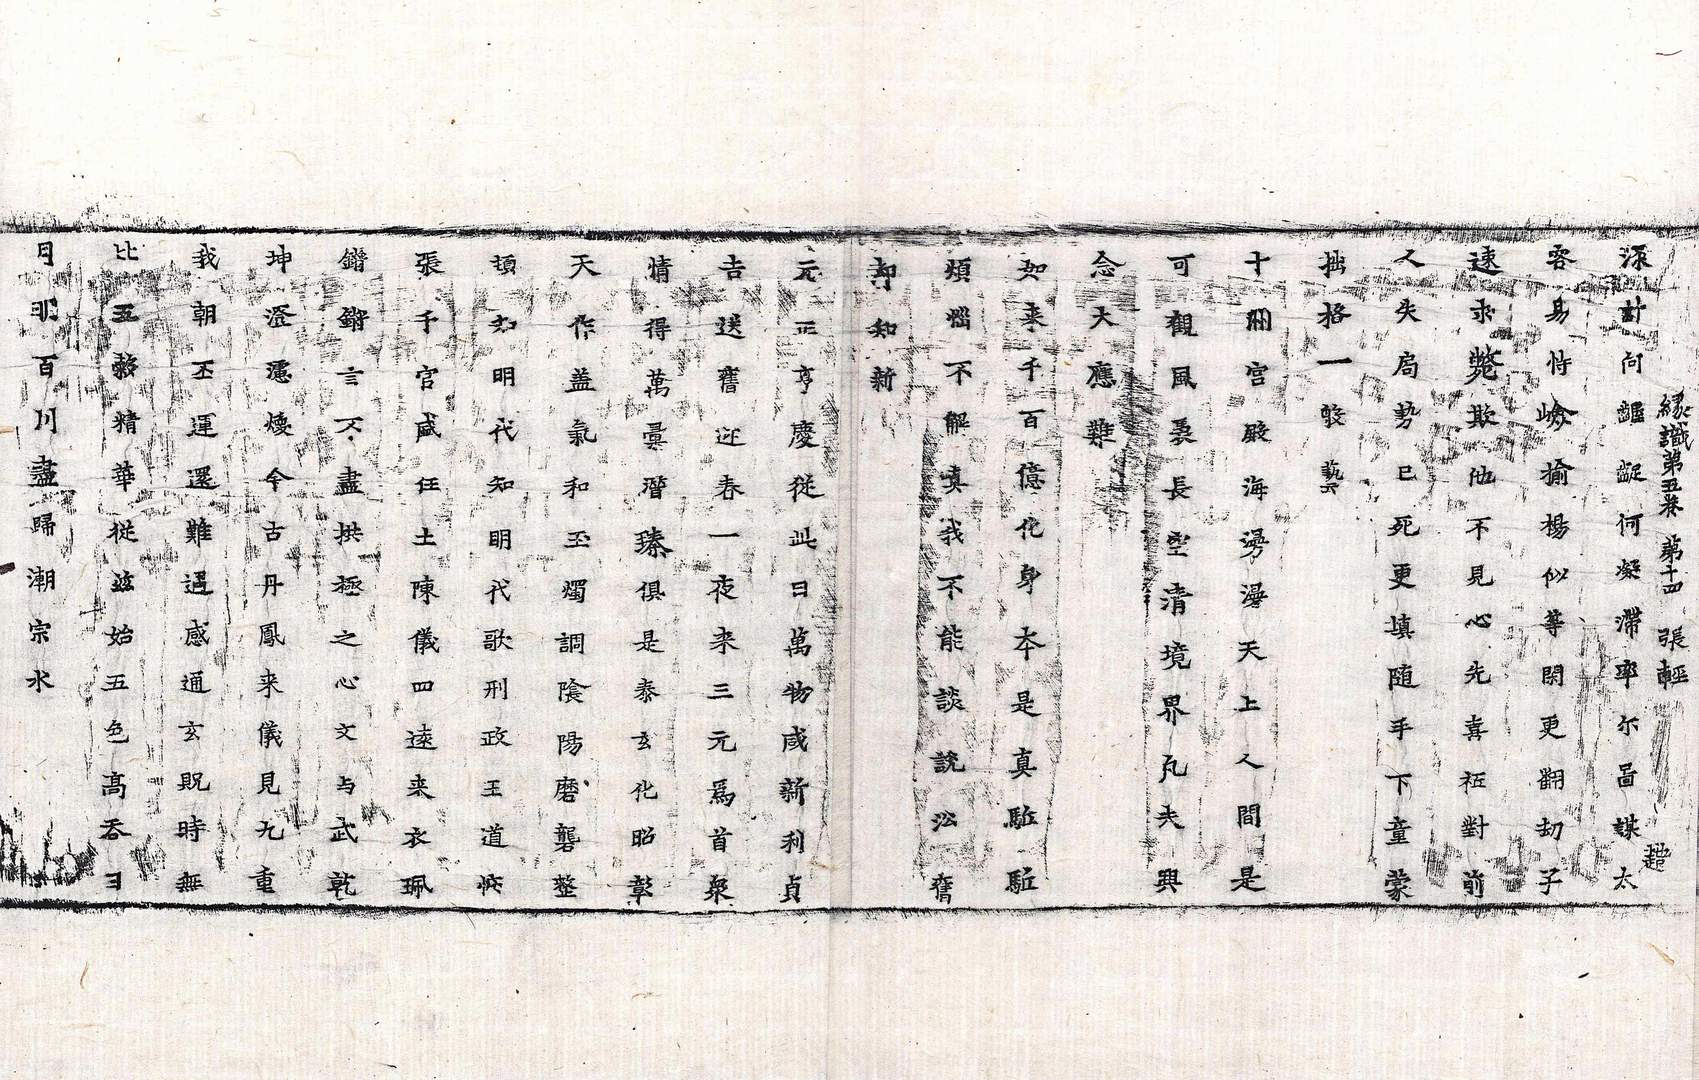 緣識第五卷 第十四 張 輕
深計向齷齪何凝滯率尔啚謀太
容易恃嶮揄楊似等閑更翻刧子
速求斃欺他不見心先喜征對前
人失局勢已死更填随手下童蒙
拙格一般藝
十洲宮殿海澷漫天上人間是
可觀風裊長空清境界凡夫興
念大應難
如来千百億化身本是真駈駈
煩惱不解真我不能談説訟舊
却知新
元正亨慶従此日萬物咸新利貞
吉送舊迎春一夜来三元爲首衆
情得萬彙曆臻俱是泰玄化昭彰
天作盖氣和玉燭調隂陽磨礱整
頓如明代知明代歌刑政王道恢
張千官咸任土陳儀四遠来衣珮
鏘鏘言不盡拱極之心文与武乾
坤澄還煥今古丹鳳来儀見九重
我朝丕運還難遇感通玄貺時無
比五穀精華従兹始五色髙吞日
月明百川盡歸潮宗水